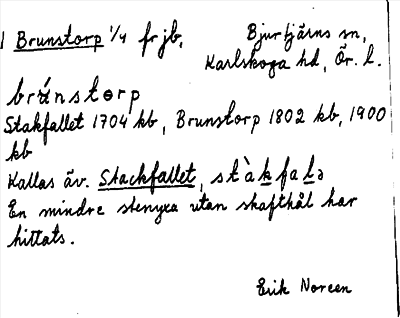 1 Brunstorp 1/4 frjb, Bjurtjärns sn,
Karlskoga hd, Ör. l.
brúnstɵrp
Stakfallet 1704 kb, Brunstorp 1802 kb, 1900
kb
Kallas äv. Stackfallet, stàkfalə
En mindre stenyxa utan skafthål har
hittats.
Erik Noreen